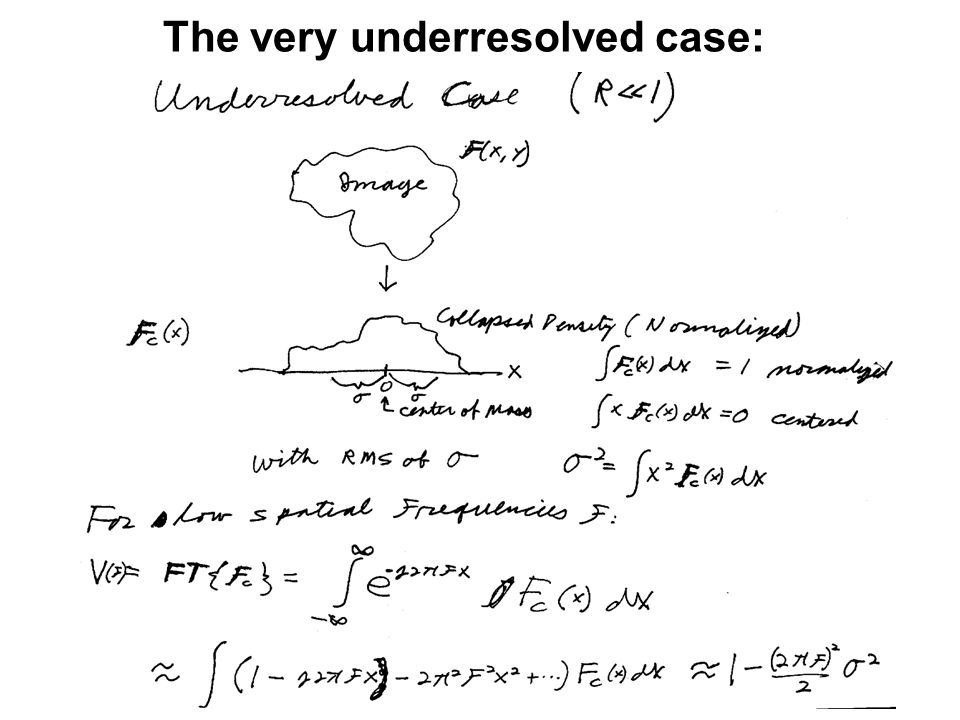 The very underresolved case:
Underresolved Case (R≪1)
F(x, y)
Image
↓
F_c(x)
Collapsed Density (Normalized)
x
∫F_c(x) dx = 1 normalized
σ 0 σ
↑ center of mass
∫x F_c(x) dx = 0 centered
with RMS of σ
σ² = ∫x² F_c(x) dx
For low spatial Frequencies F:
V(F) = FT{F_c} = ∫_{-∞}^{∞} e^{-i2πFx} F_c(x) dx
≈ ∫(1 - i2πFx - 2π²F²x² + ...) F_c(x) dx ≈ 1 - (2πF)²/2 σ²